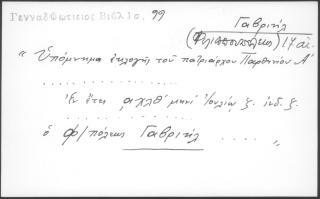 Γενναδ Φωτειος Βιβλιο. 99
Γαβριήλ
(Φιλιππουπόλεως) 17 αἰ.
"Ὑπόμνημα ἐκλογῆς τοῦ πατριάρχου Παρθενίου Α'
..........
Ἐν ἔτει αχλθ' μηνί Ἰουλίῳ ξ. ἰνδ. ξ.
..........
ὁ Φ/πόλεως Γαβριήλ "